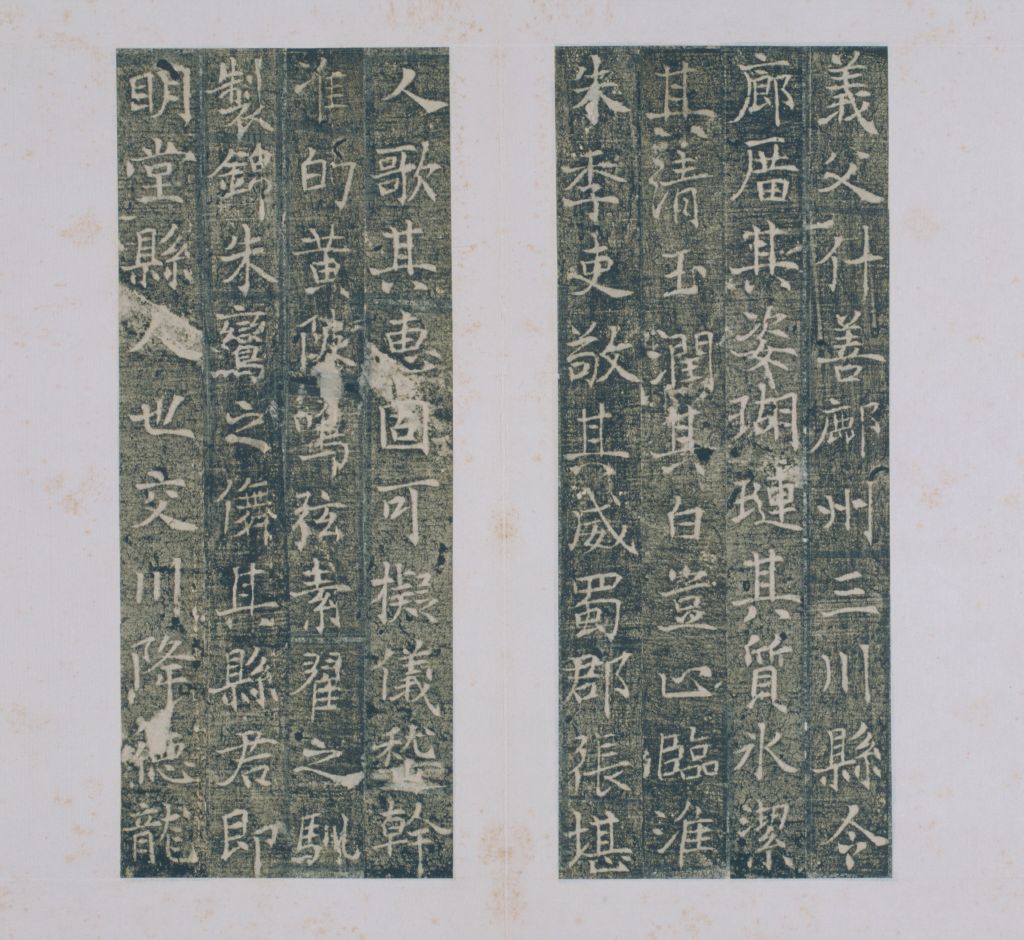 義父什善鄜州三川縣令
廊厝其姿瑚璉其質氷潔
其清玉潤其白豈止臨淮
朱季吏敬其威蜀郡張堪
人歌其恵固可擬儀嵇幹
准的黄陂鳴弦素翟之馴
製錦朱鸞之儔其縣君即
明堂縣人世交川降德龍